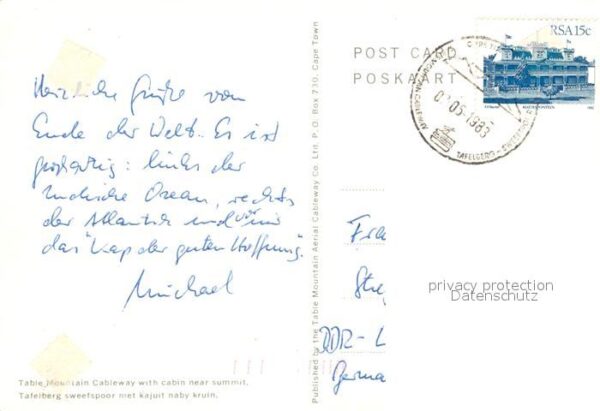 Herzliche Grüße vom
Ende der Welt. Es ist
großartig: links der
Indische Ozean, rechts
der Atlantik und vor mir
das "Kap der guten Hoffnung".
Michael
Table Mountain Cableway with cabin near summit.
Tafelberg sweefspoor met kajuit naby kruin.
Published by the Table Mountain Aerial Cableway Co. Ltd. P.O. Box 730, Cape Town
POST CARD
POSKAART
RSA 15c
05-1983
TAFELBERG
Fra
Stre
DDR-L
Germa
privacy protection
Datenschutz